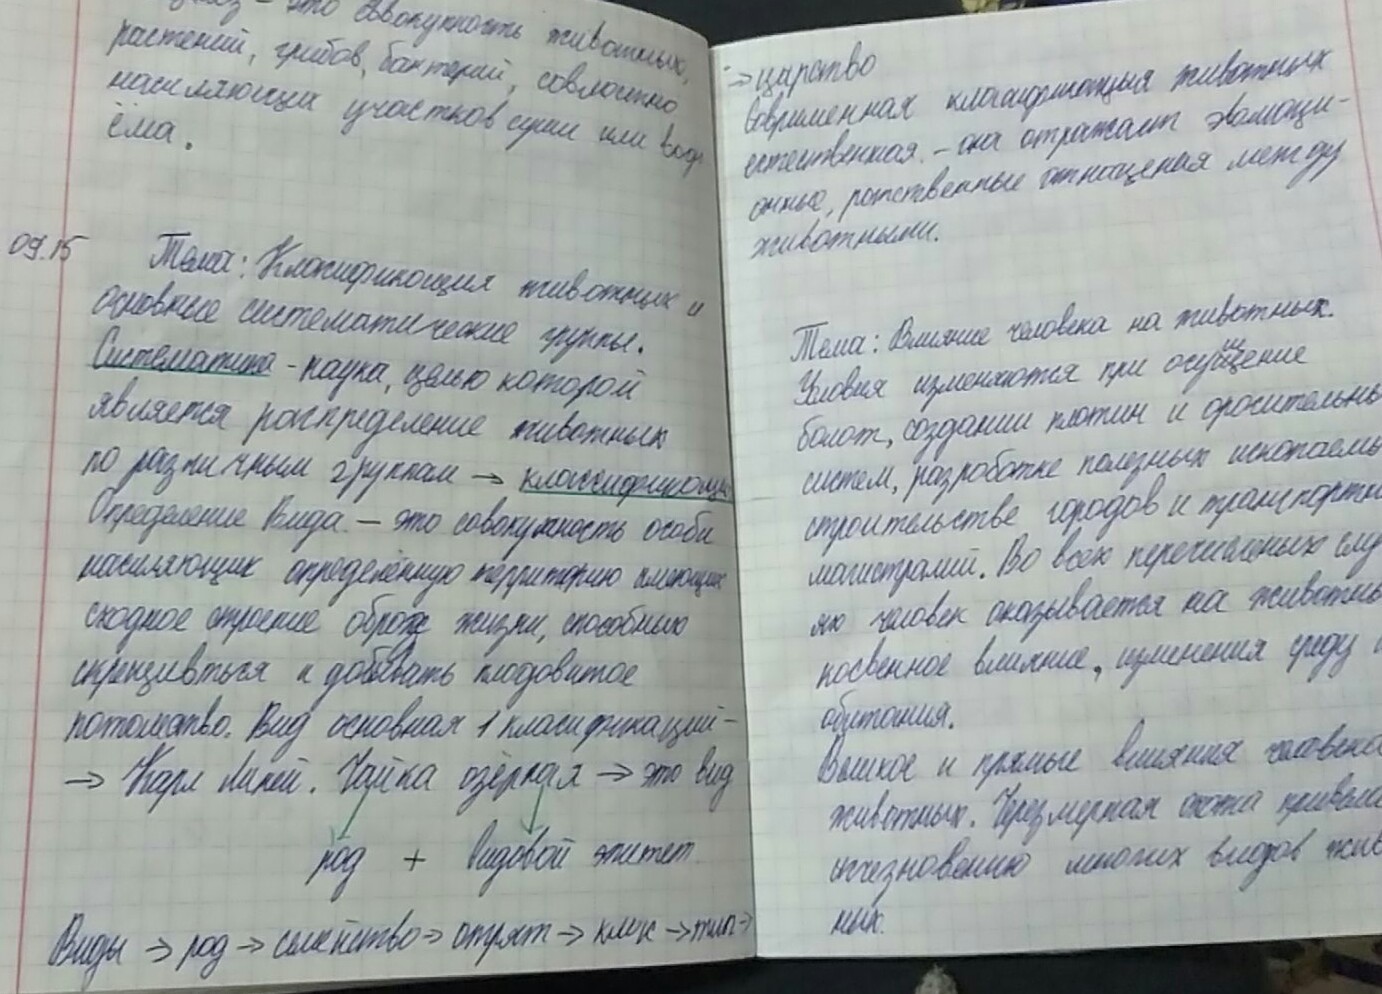 – это совокупность животных,
растений, грибов, бактерий, совместно
насиляющих участков суши или вод-
ёма.
09.15 Тема: Класификация животных и
основные систематические группы.
Систематика - наука, целью которой
является распределение животных
по различным группам → классификация
Определение Вида – это совокупность особи
насиляющих определённую территорию имеющих
сходное строение образ жизни, способных
скрещиваться и добывать плодовитое
потомство. Вид основная 1 класификаций –
→ Карл Линей. Чайка озёрная → это вид
род + Видовой эпитет
Виды → род → семейство → отрят → клас → тип →
→ царство
Современная класификация животных
естественная. – она отражает эволюци-
онные, ротственные отношения между
животными.
Тема: Влияние человека на животных.
Условия изменяются при осушение
болот, создании плотин и ороситель
систем, разработке полезных ископаемы
строительстве городов и транспортн
магистралий. Во всех перечисленых слу
ях человек оказывается на животны
косвенное влияние, изменения среду
обитания.
и прямые влияния человека
животных. Черезмерная охота привела
изчезновению многих видов жив
ных.